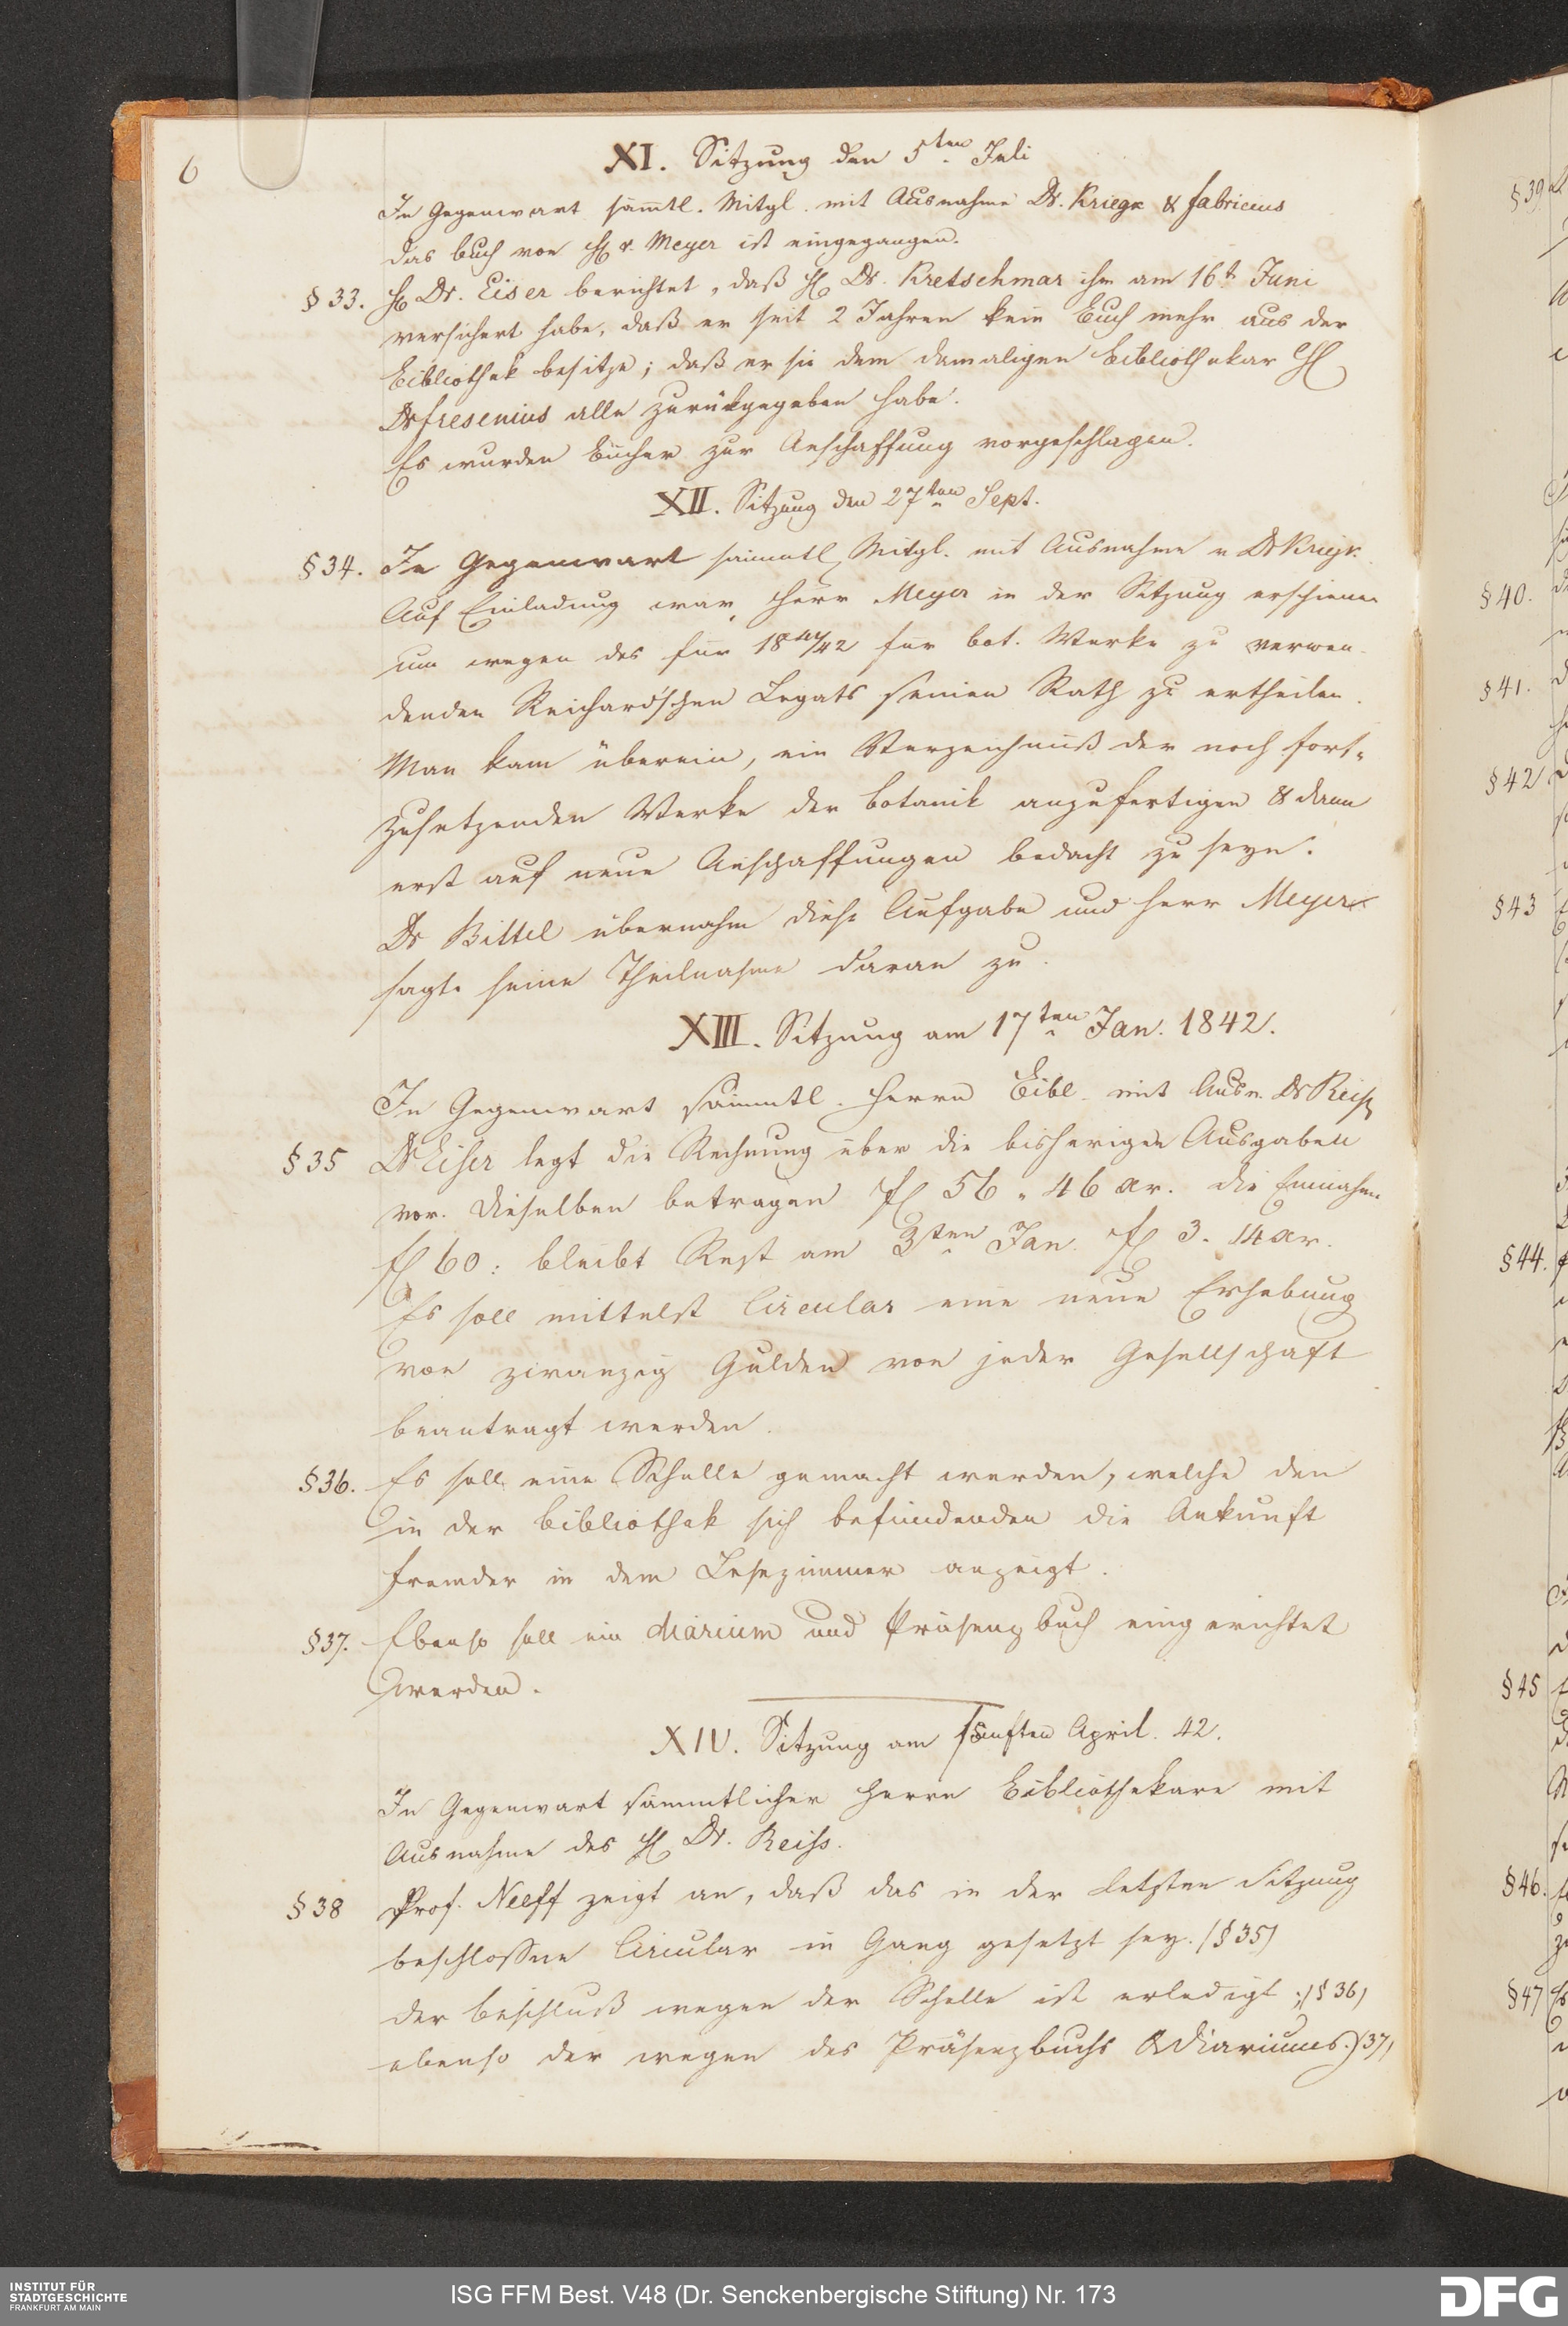 6
XI. Sitzung den 5ten Juli
In Gegenwart sämtl. Mitgl. mit Ausnahme Dr. Kriegk & Fabricius
das Buch von H v. Meyer ist eingegangen.
§ 33. H Dr. Eiser berichtet, daß H Dr. Kretschmar ihm am 16t Juni
versichert habe, daß er seit 2 Jahren kein Buch mehr aus der
Bibliothek besitze; daß er sie dem damaligen Bibliothekar H
Dr Fresenius alle zurükgegeben habe.
Es wurden Bücher zur Anschaffung vorgeschlagen.
XII. Sitzung den 27ten Sept.
§ 34. In Gegenwart sämmtl Mitgl. mit Ausnahme v Dr Kriegk.
Auf Einladung war Herr Meyer in der Sitzung erschienen
um wegen des für 1841/42 für bot. Werke zu verwen-
denden Reichard'schen Legats seinen Rath zu ertheilen.
Man kam überein, ein Verzeichniß der noch fort-
zusetzenden Werke der Botanik anzufertigen & dann
erst auf neue Anschaffungen bedacht zu seyn.
Dr Bittel übernahm diese Aufgabe und Herr Meyer
sagte seine Theilnahme daran zu.
XIII. Sitzung am 17ten Jan. 1842.
In Gegenwart sämmtl. Herrn Bibl. mit Ausn. Dr Reiß
§ 35 Dr Eiser legt die Rechnung über die bisherigen Ausgaben
vor. Dieselben betragen fl 56 " 46 xr. die Einnahmen
fl 60: bleibt Rest am 3ten Jan. fl 3. 14 xr.
Es soll mittelst Circular eine neue Erhebung
von zwanzig Gulden von jeder Gesellschaft
beantragt werden.
§ 36. Es soll eine Schelle gemacht werden, welche den
in der Bibliothek sich befindenden die Ankunft
Fremder in dem Lesezimmer anzeigt.
§ 37. Ebenso soll ein Diarium und Präsenzbuch eingerichtet
werden.
XIV. Sitzung am fünften April. 42.
In Gegenwart sämmtlicher Herrn Bibliothekare mit
Ausnahme des H Dr. Reiss.
§ 38 Prof. Neeff zeigt an, daß das in der letzten Sitzung
beschloßene Circular in Gang gesetzt sey. (§ 35)
der Beschluß wegen der Schelle ist erledigt; (§ 36)
ebenso der wegen des Präsenzbuchs & Diariums. (37)
§ 39
§ 40.
§ 41.
§ 42
§ 43
§ 44.
§ 45
§ 46.
§ 47
INSTITUT FÜR
STADTGESCHICHTE
FRANKFURT AM MAIN
ISG FFM Best. V48 (Dr. Senckenbergische Stiftung) Nr. 173
DFG